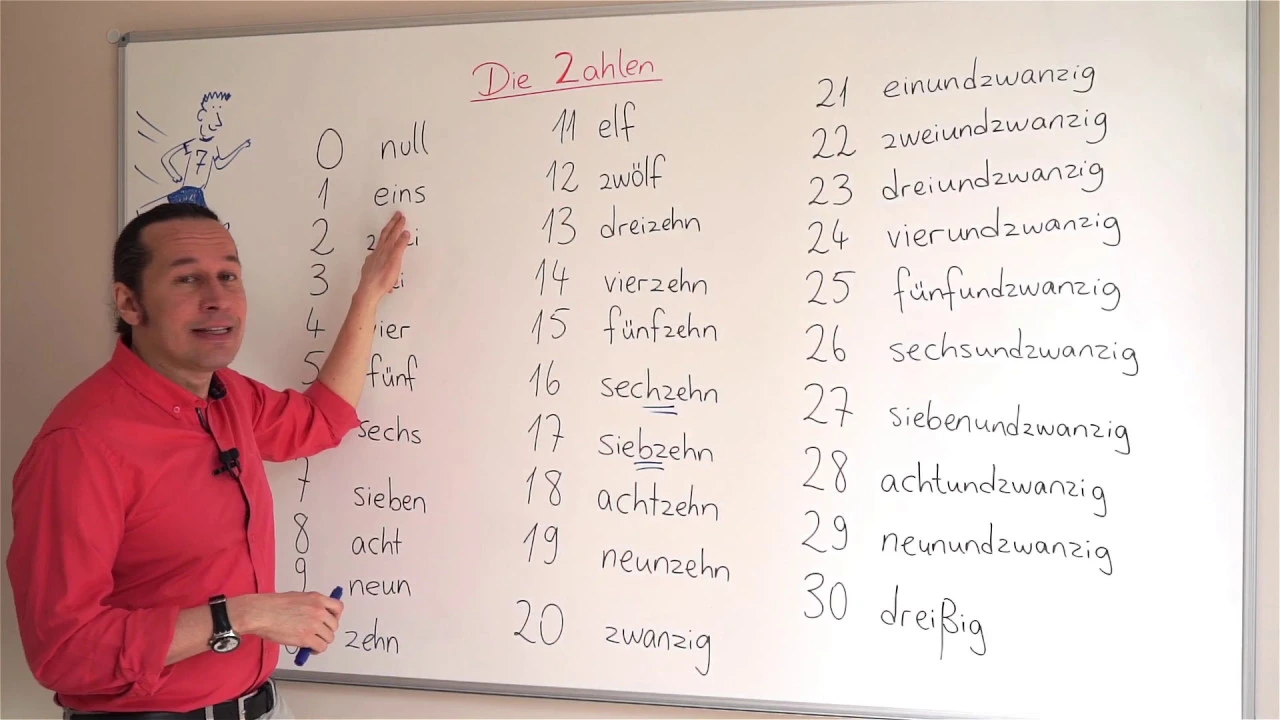 Die Zahlen
7
0 null
1 eins
2
3
4
5 fünf
sechs
7 sieben
8 acht
9 neun
zehn
11 elf
12 zwölf
13 dreizehn
14 vierzehn
15 fünfzehn
16 sechzehn
17 siebzehn
18 achtzehn
19 neunzehn
20 zwanzig
21 einundzwanzig
22 zweiundzwanzig
23 dreiundzwanzig
24 vierundzwanzig
25 fünfundzwanzig
26 sechsundzwanzig
27 siebenundzwanzig
28 achtundzwanzig
29 neunundzwanzig
30 dreißig